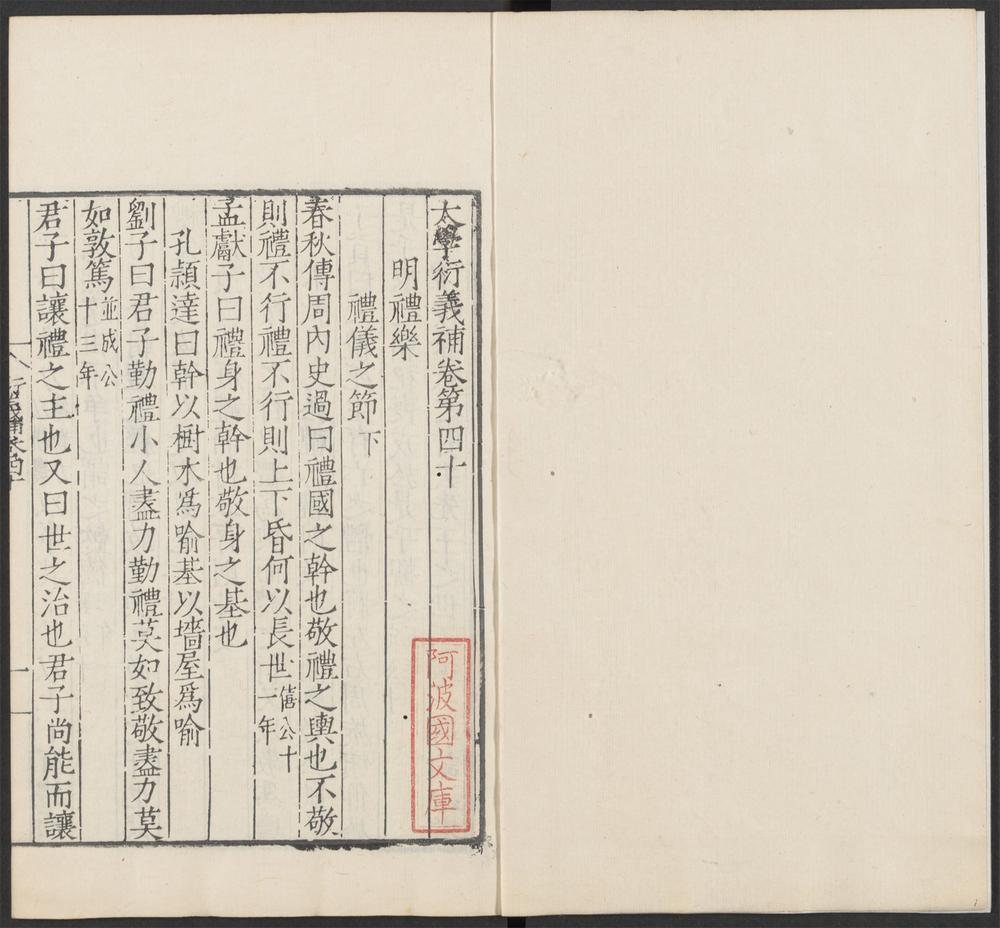 大學衍義補卷第四十
明禮樂
禮儀之節下
春秋傳周內史過曰禮國之幹也敬禮之輿也不敬
則禮不行禮不行則上下昏何以長世僖公十一年
孟獻子曰禮身之幹也敬身之基也
孔頴達曰幹以樹木爲喻基以墻屋爲喻
劉子曰君子勤禮小人盡力勤禮莫如致敬盡力莫
如敦篤並成公十三年
君子曰讓禮之主也又曰世之治也君子尚能而讓
阿波國文庫